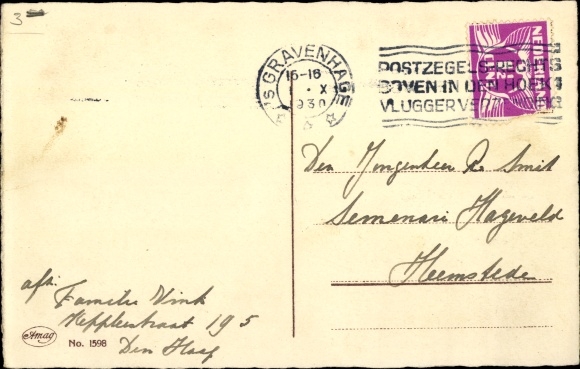 3
'sGRAVENHAGE
15-16
X
1930
POSTZEGELS RECHTS
BOVEN IN DEN HOEK
VLUGGER VERZENDING
NEDERLAND
Den Jongenheer R. Smit
Semenari Hageveld
Heemstede
afz:
Familie Vink
Kepplerstraat 195
Den Haag
Amag
No. 1598